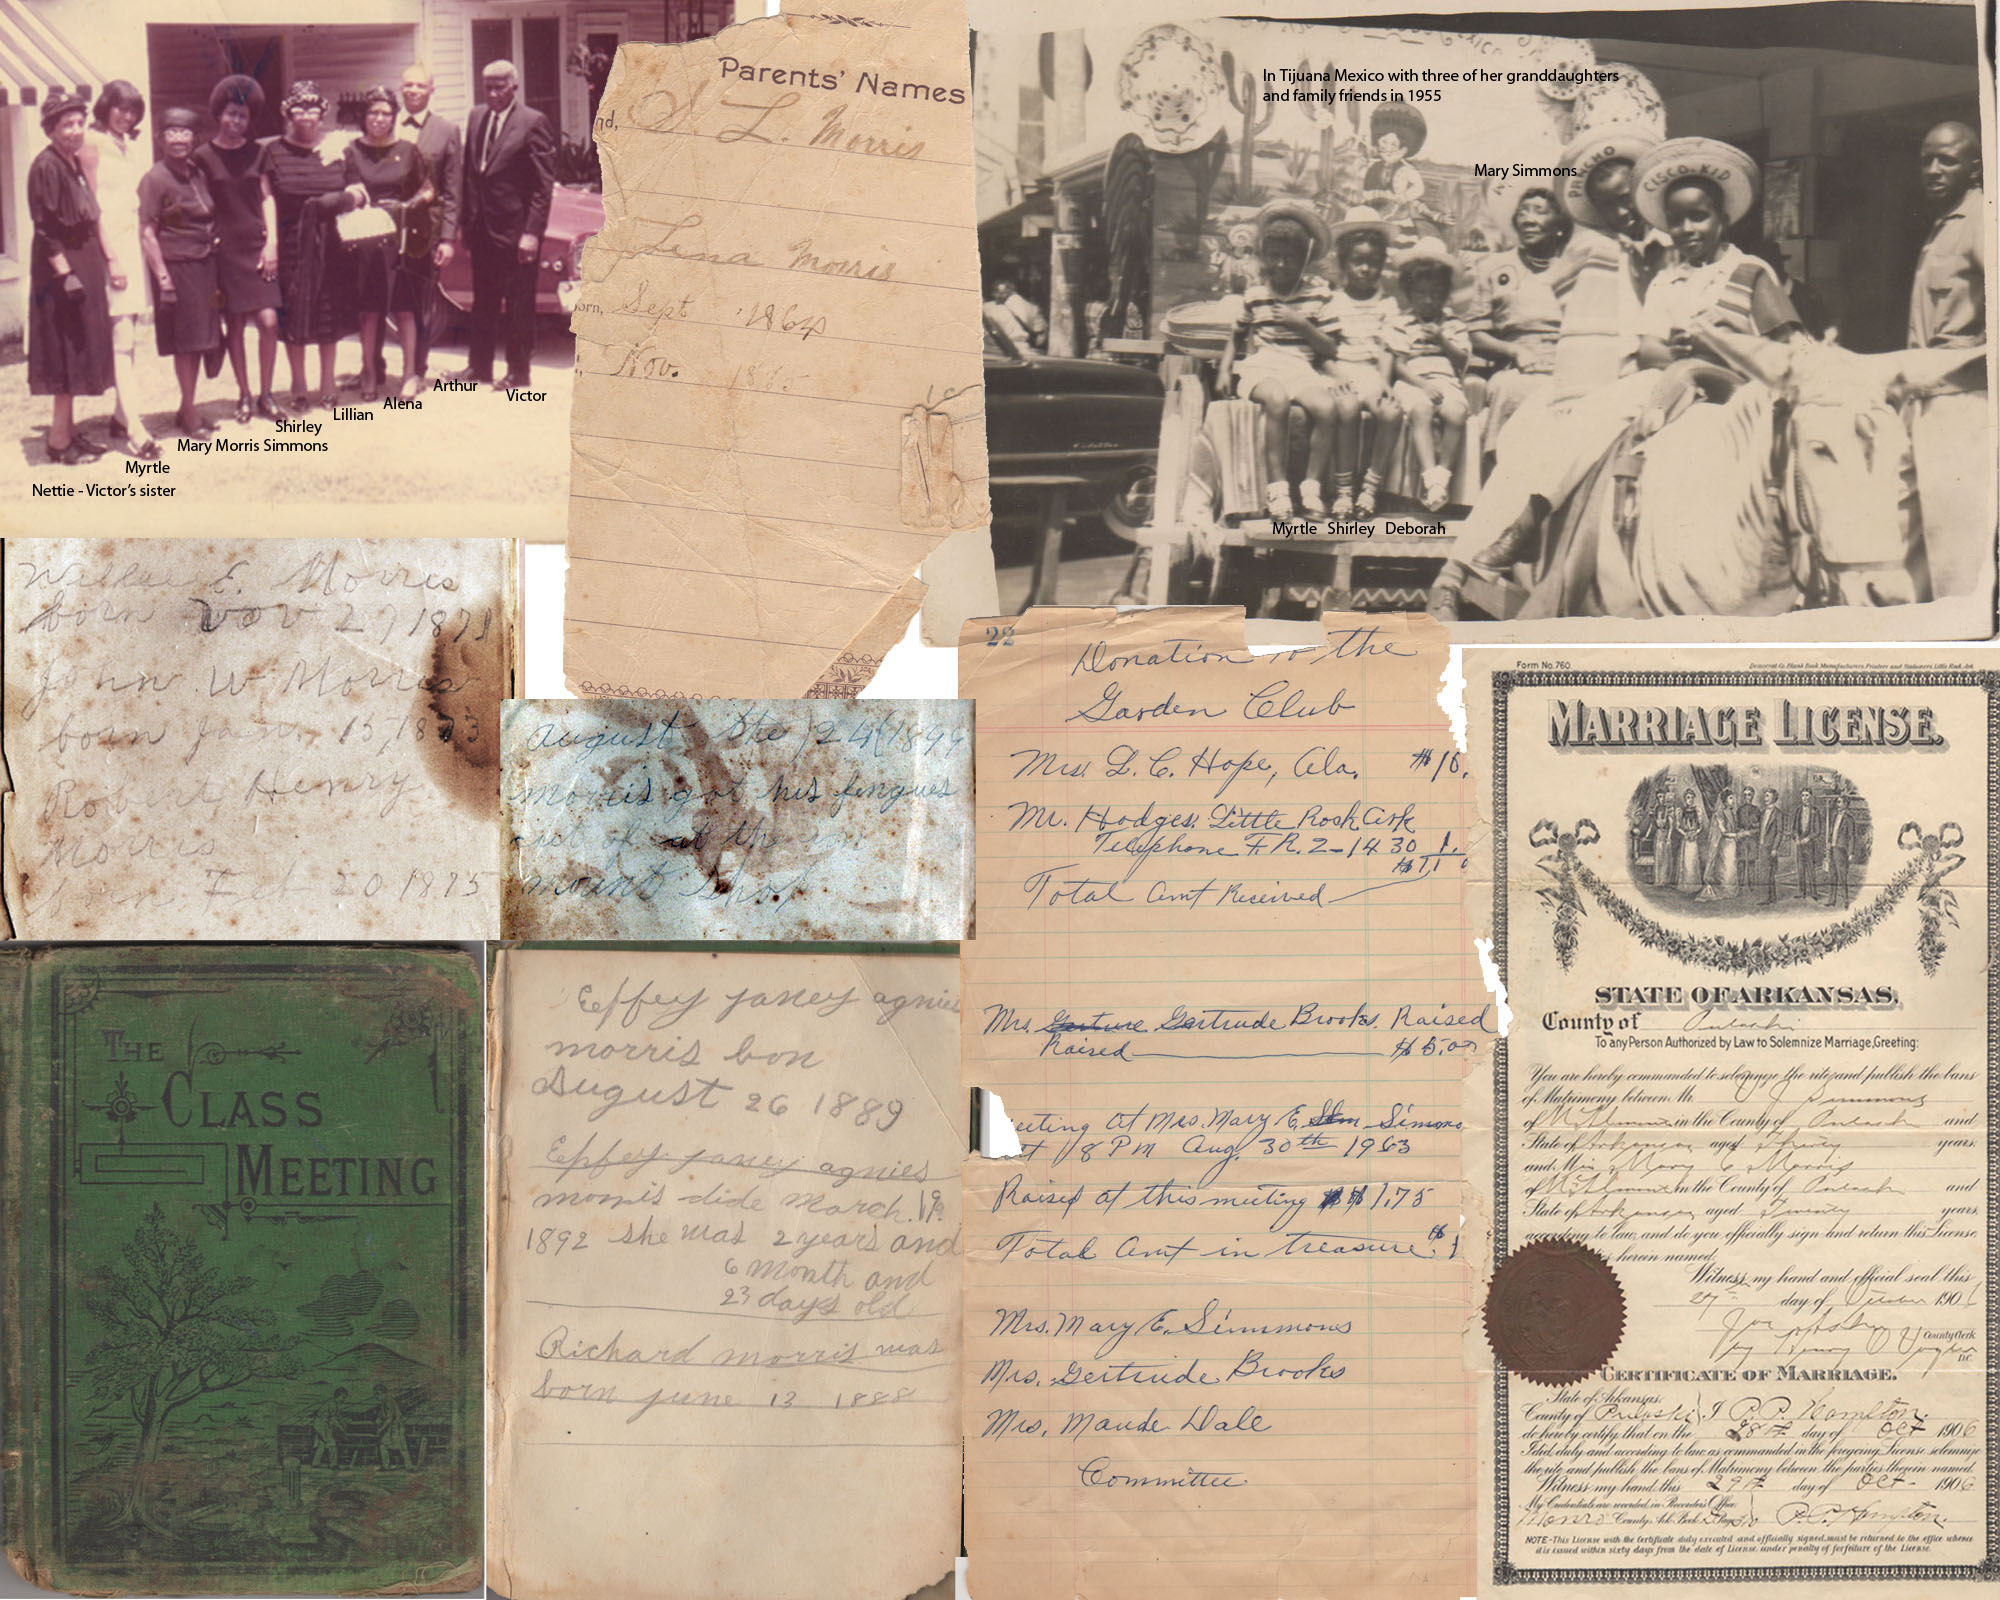 Nettie - Victor's sister
Myrtle
Mary Morris Simmons
Shirley
Lillian
Alena
Arthur
Victor
Parents' Names
S. L. Morris
Lena Morris
orn, Sept 1864
Nov. 1885
In Tijuana Mexico with three of her granddaughters
and family friends in 1955
Mary Simmons
PANCHO
CISCO KID
Myrtle Shirley Deborah
E. Morris
born Nov 27 1871
John W Morris
born Jan. 15, 1873
Robert Henry
Morris
born Feb 20 1875
august the 24 1899
morris got his fingues
cut of at the
mount shop
THE
CLASS
MEETING
Effey janey agnies
morris bon
August 26 1889
Effey janey agnies
morris dide march 19
1892 she was 2 years and
6 month and
23 days old
Richard morris was
born june 13 1888
22
Donation to the
Garden Club
Mrs. L. C. Hope, Ala. $10.
Mr. Hodges. Little Rosk Ark
Telephone F.R. 2-1430 1.
$11
Total Amt Received
Mrs. Gerture Gertrude Brooks. Raised
Raised $5.00
eeting at Mrs. Mary E. Sim Simons
at 8 PM Aug. 30th 1963
Raised at this meeting $1.75
Total Amt in treasure. $1
Mrs. Mary E. Simmons
Mrs. Gertrude Brooks
Mrs. Maude Dale
Committee
Form No. 760.
Democrat Co. Blank Book Manufacturers, Printers and Stationers, Little Rock, Ark.
MARRIAGE LICENSE.
STATE OF ARKANSAS,
County of Pulaski
To any Person Authorized by Law to Solemnize Marriage, Greeting:
You are hereby commanded to solemnize the rite and publish the bans
of Matrimony between Mr. J Simmons
of in the County of Pulaski and
State of Arkansas aged Thirty years.
and Miss Mary E Morris
of in the County of Pulaski and
State of Arkansas aged Twenty years
according to law, and do you officially sign and return this License
herein named.
Witness my hand and official seal this
27 day of October 190
County Clerk
D.C.
CERTIFICATE OF MARRIAGE.
State of Arkansas,
County of Pulaski I P. P. Hampton
do hereby certify that on the 28th day of Oct 1906
I did, duly and according to law, as commanded in the foregoing License, solemnize
the rite and publish the bans of Matrimony between the parties therein named.
Witness my hand this 29th day of Oct - 1906
My Credentials are recorded in Recorder's Office
Monro County, Ark. Book Page P. P. Hampton.
NOTE-This License with the Certificate duly executed and officially signed, must be returned to the office whence
it is issued within sixty days from the date of License, under penalty of forfeiture of the License.